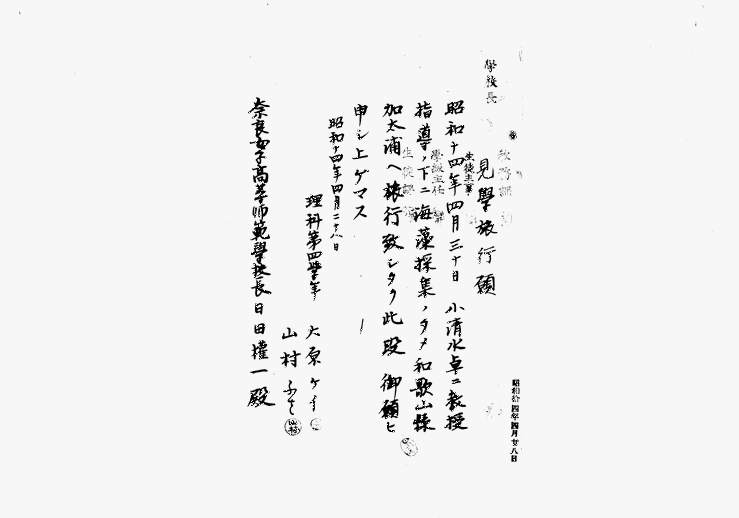 學校長
見學旅行願
生徒主事
學級主任
生徒課
教務課
昭和十四年四月三十日 小清水卓二教授
指導ノ下ニ海藻採集ノタメ和歌山縣
加太浦ヘ旅行致シタク此段御願ヒ
申シ上ゲマス
昭和十四年四月二十八日
理科第四學年
大原
山村
奈良女子高等師範學校長日田權一殿
昭和拾四年四月廿八日